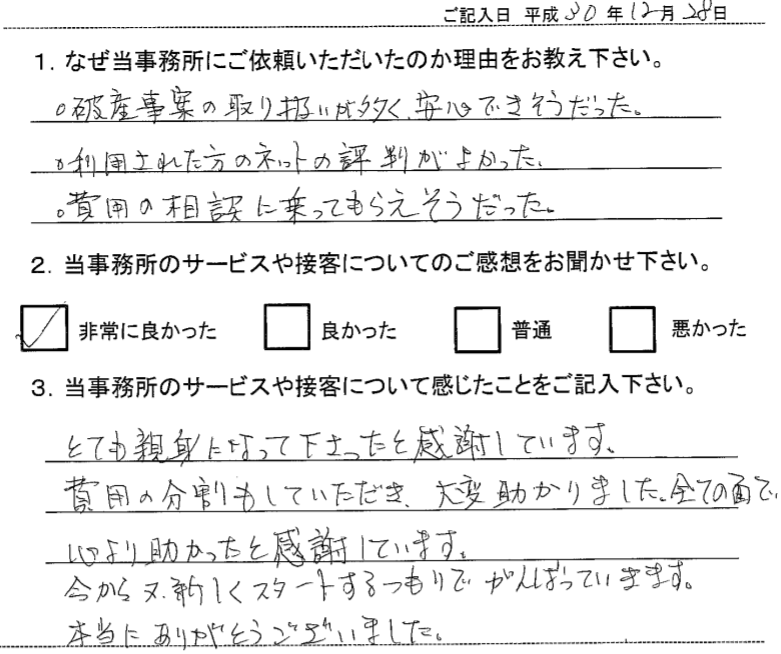 ご記入日 平成 30 年 12 月 28 日
1. なぜ当事務所にご依頼いただいたのか理由をお教え下さい。
○破産事案の取り扱いが多く、安心できそうだった。
○利用された方のネットの評判がよかった、
○費用の相談に乗ってもらえそうだった。
2. 当事務所のサービスや接客についてのご感想をお聞かせ下さい。
非常に良かった 良かった 普通 悪かった
3. 当事務所のサービスや接客について感じたことをご記入下さい。
とても親身になって下さったと感謝しています。
費用の分割もしていただき、大変助かりました。全ての面で、
心より助かったと感謝しています。
今から又、新しくスタートするつもりで がんばっていきます。
本当にありがとうございました。